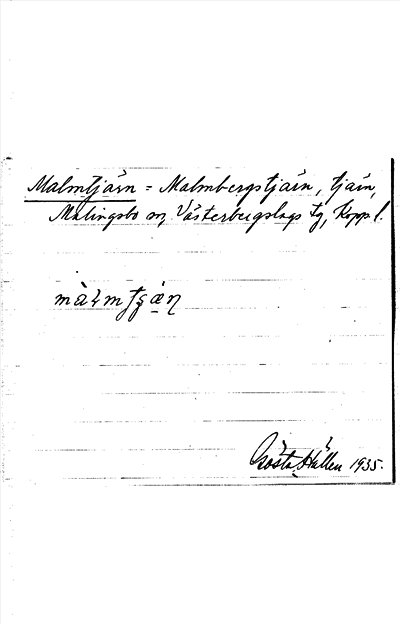 Malmtjärn = Malmbergstjärn, tjärn,
Malingsbo sn, Västerbergslags tg, Kopp. l.
Gösta Hallen 1935.